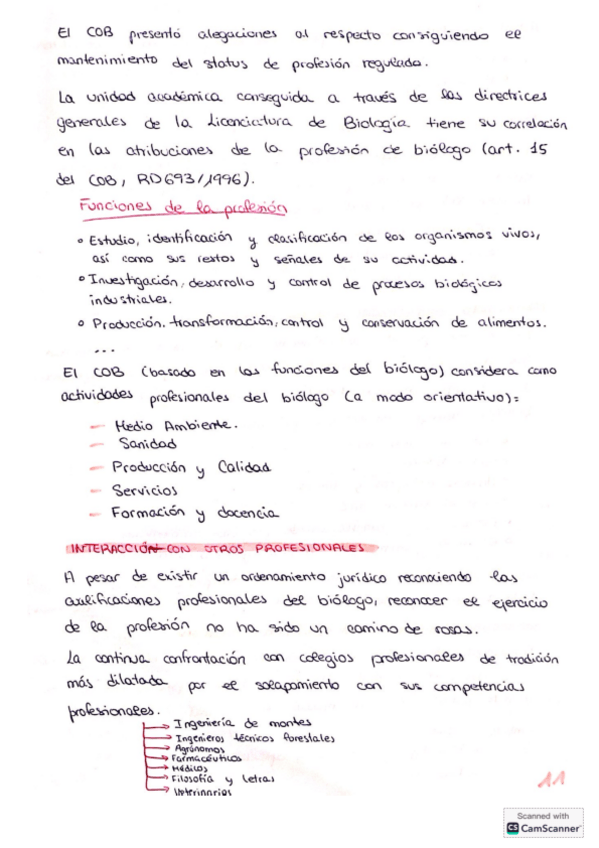 El COB presentó alegaciones al respecto consiguiendo el
mantenimiento del status de profesión regulada.
La unidad académica conseguida a través de las directrices
generales de la Licenciatura de Biología tiene su correlación
en las atribuciones de la profesión de biólogo (art. 15
del COB, RD 693/1996).
Funciones de la profesión
• Estudio, identificación y clasificación de los organismos vivos,
así como sus restos y señales de su actividad.
• Investigación, desarrollo y control de procesos biológicos
industriales.
• Producción, transformación, control y conservación de alimentos.
...
El COB (basado en las funciones del biólogo) considera como
actividades profesionales del biólogo (a modo orientativo):
- Medio Ambiente.
- Sanidad
- Producción y Calidad
- Servicios
- Formación y docencia
INTERACCIÓN CON OTROS PROFESIONALES
A pesar de existir un ordenamiento jurídico reconociendo las
cualificaciones profesionales del biólogo, reconocer el ejercicio
de la profesión no ha sido un camino de rosas.
La continua confrontación con colegios profesionales de tradición
más dilatada por el solapamiento con sus competencias
profesionales.
→ Ingeniería de montes
→ Ingenieros técnicos forestales
→ Agrónomos
→ Farmacéuticos
→ Médicos
→ Filosofía y letras
→ Veterinarios
11
Scanned with
CS CamScanner